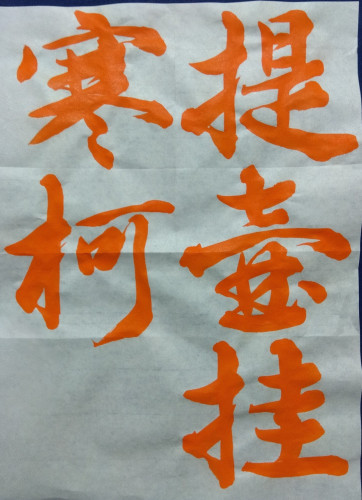 提壺挂
寒柯